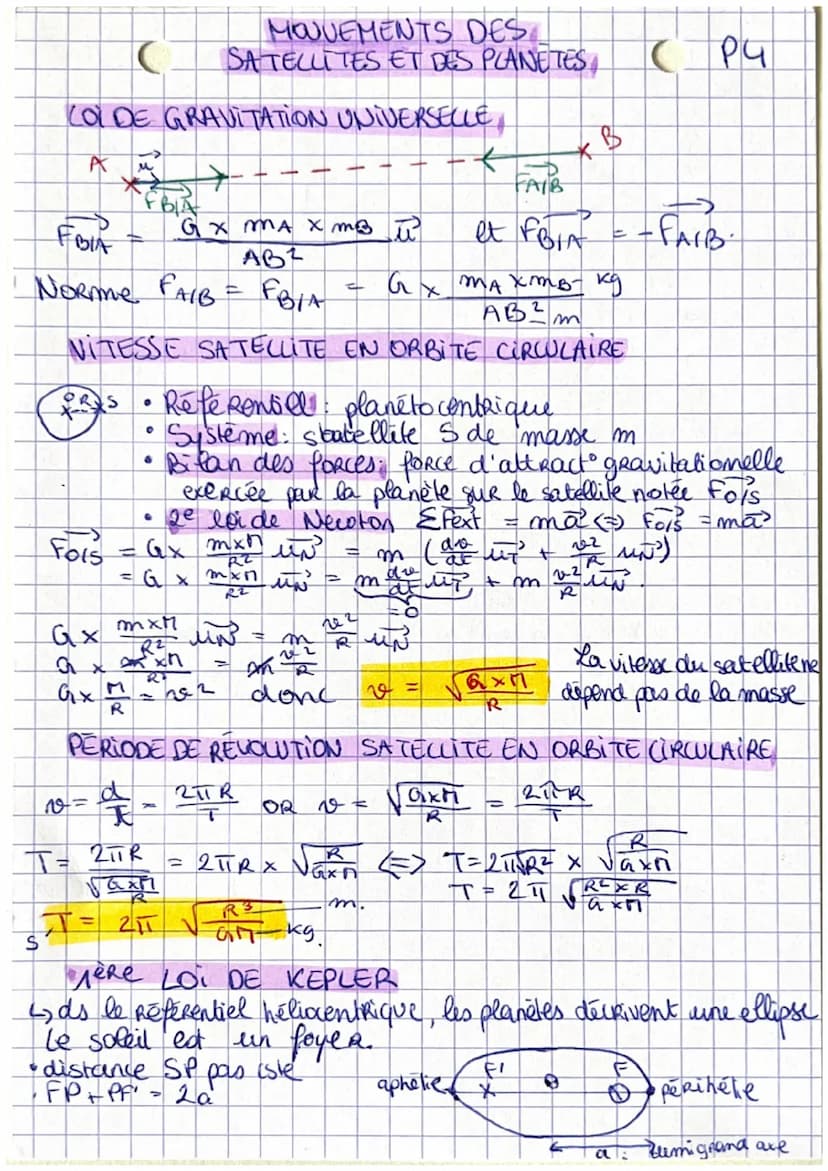 MOUVEMENTS DES
SATELLITES ET DES PLANÈTES
P4
LOI DE GRAVITATION UNIVERSELLE
A u⃗ B
F⃗B/A F⃗A/B
F⃗B/A = G × mA × mB / AB² u⃗ et F⃗B/A = -F⃗A/B.
Norme FA/B = FB/A = G × mA × mB / AB² kg m
VITESSE SATELLITE EN ORBITE CIRCULAIRE
O R S
• Référentiel : planétocentrique
• Système : satellite S de masse m
• Bilan des forces : force d'attract° gravitationelle
exercée par la planète sur le satellite notée F⃗O/S
• 2e loi de Newton ΣF⃗ext = ma⃗ <=> F⃗O/S = ma⃗
F⃗O/S = G × m×M / R² u⃗N = m (dv/dt u⃗T + v²/R u⃗N)
= G × m×M / R² u⃗N = m dv/dt u⃗T + m v²/R u⃗N.
=0
G × m×M / R² u⃗N = m v²/R u⃗N
G × m×M / R² = m v²/R
G × M/R = v² donc v = √(G×M / R)
La vitesse du satellite ne
dépend pas de la masse
PÉRIODE DE RÉVOLUTION SATELLITE EN ORBITE CIRCULAIRE
v = d/t = 2πR/T OR v = √(G×M / R) = 2πR/T
T = 2πR / √(G×M / R) = 2πR × √(R / G×M) <=> T = 2π√R² × √(R / G×M)
T = 2π √(R²×R / G×M)
s T = 2π √(R³ / GM) m. kg.
1ÈRE LOI DE KEPLER
↳ ds le référentiel héliocentrique, les planètes décrivent une ellipse
le soleil est un foyer.
• distance SP pas cste
• FP + PF' = 2a
aphélie F' F périhélie
a : demi grand axe